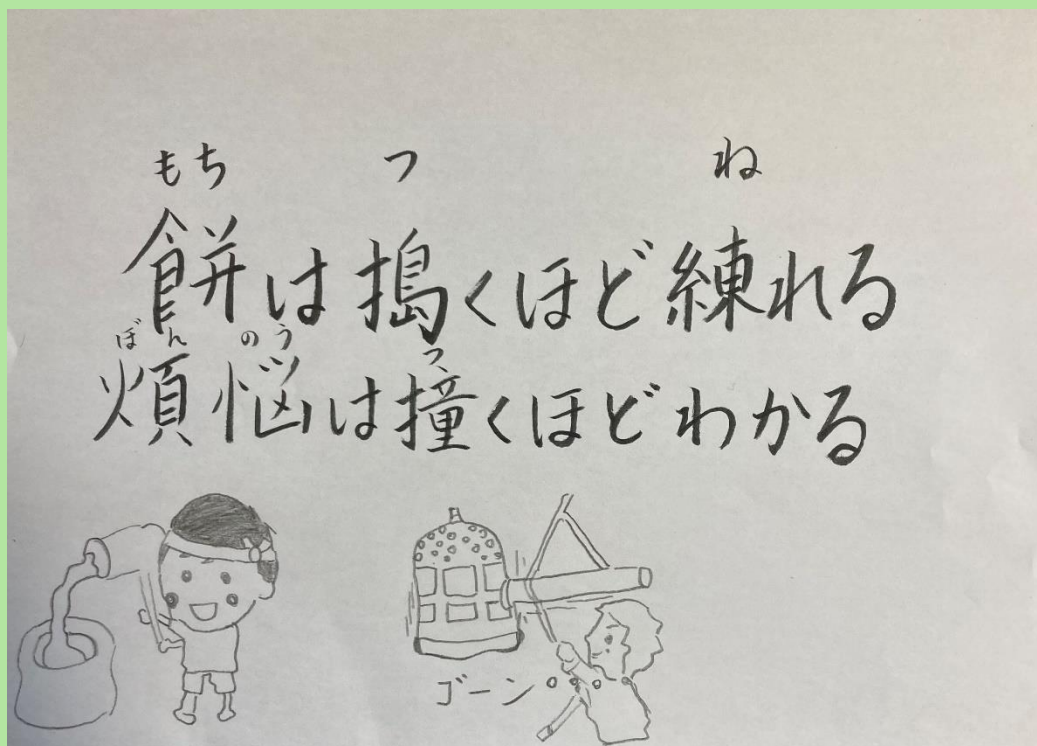 もち つ ね
餅は搗くほど練れる
ぼんのう つ
煩悩は撞くほどわかる
ゴーン。。。